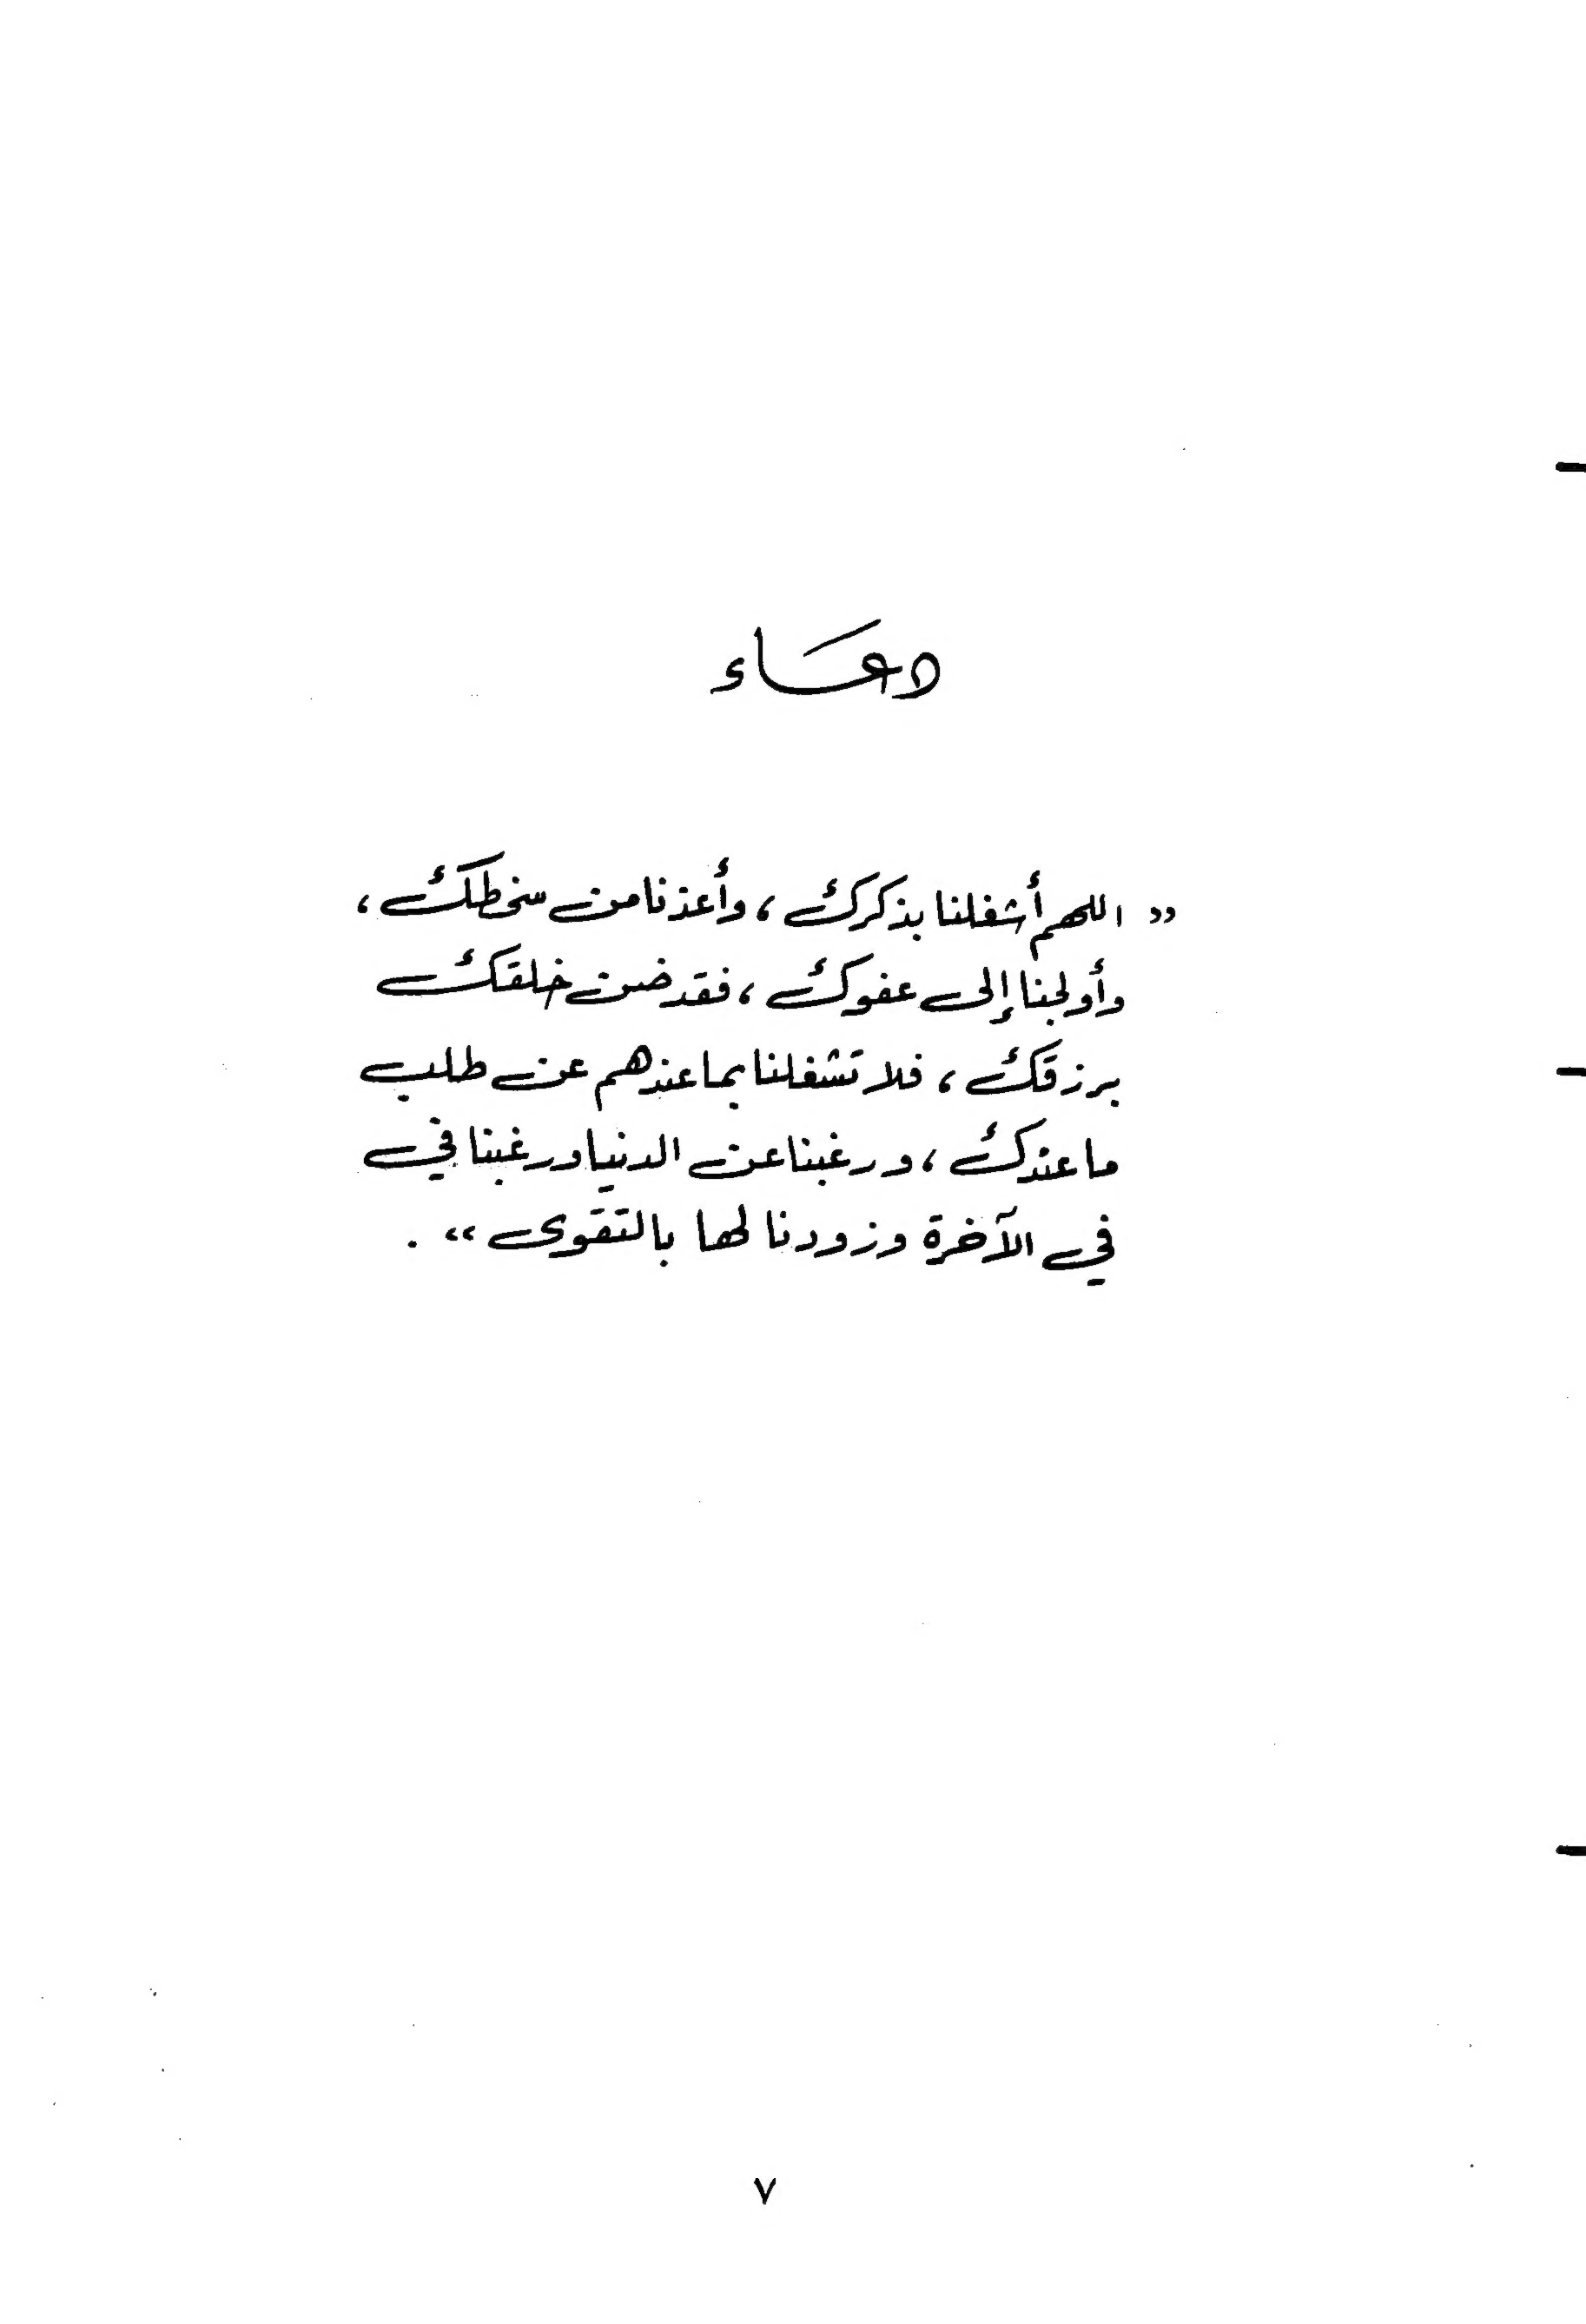 دعاء
"اللهم أشغلنا بذكرك، وأعذنا من سخطك،
وأولجنا إلى عفوك، فقد ضن خلقك
برزقك، فلا تشغلنا بما عندهم عن طلب
ما عندك، ورغبنا عن الدنيا ورغبنا في
في الآخرة وزودنا لها بالتقوى".
٧